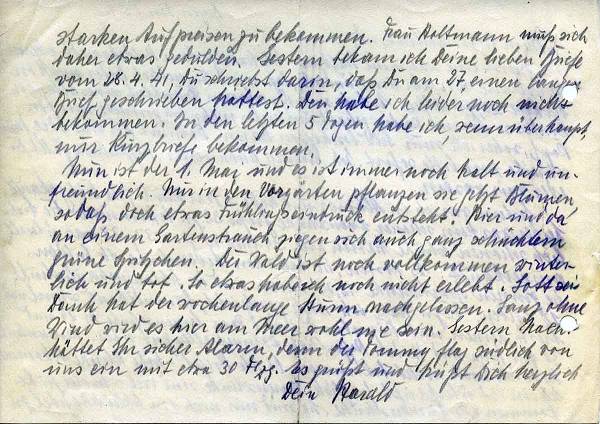 starken Aufpreisen zu bekommen. Frau Holtmann muß sich
daher etwas gedulden. Gestern bekam ich Deine lieben Briefe
vom 28.4.41, Du schriebst darin, daß Du am 27. einen langen
Brief geschrieben hättest. Den habe ich leider noch nicht
bekommen. In den letzten 5 Tagen habe ich, wenn überhaupt,
nur Kurzbriefe bekommen.
Nun ist der 1. May und es ist immer noch kalt und un-
freundlich. Nur in den Vorgärten pflanzen sie jetzt Blumen,
sodaß doch etwas Frühlingseindruck entsteht. Hier und da
an einem Gartenstrauch zeigen sich auch ganz schüchtern
grüne Spitzchen. Der Wald ist noch vollkommen winter-
lich und tot. So etwas habe ich noch nicht erlebt. Gott sei
Dank hat der wochenlange Sturm nachgelassen. Ganz ohne
Wind wird es hier am Meer wohl nie sein. Gestern
hättet Ihr sicher Alarm, denn der Tommy flog südlich von
uns ein mit etwa 30 Flzg. Es grüßt und küßt Dich herzlich
Dein Harald